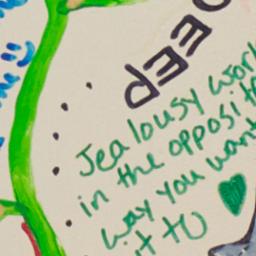 DEEP
Jealousy work
in the opposite
way you want
it to